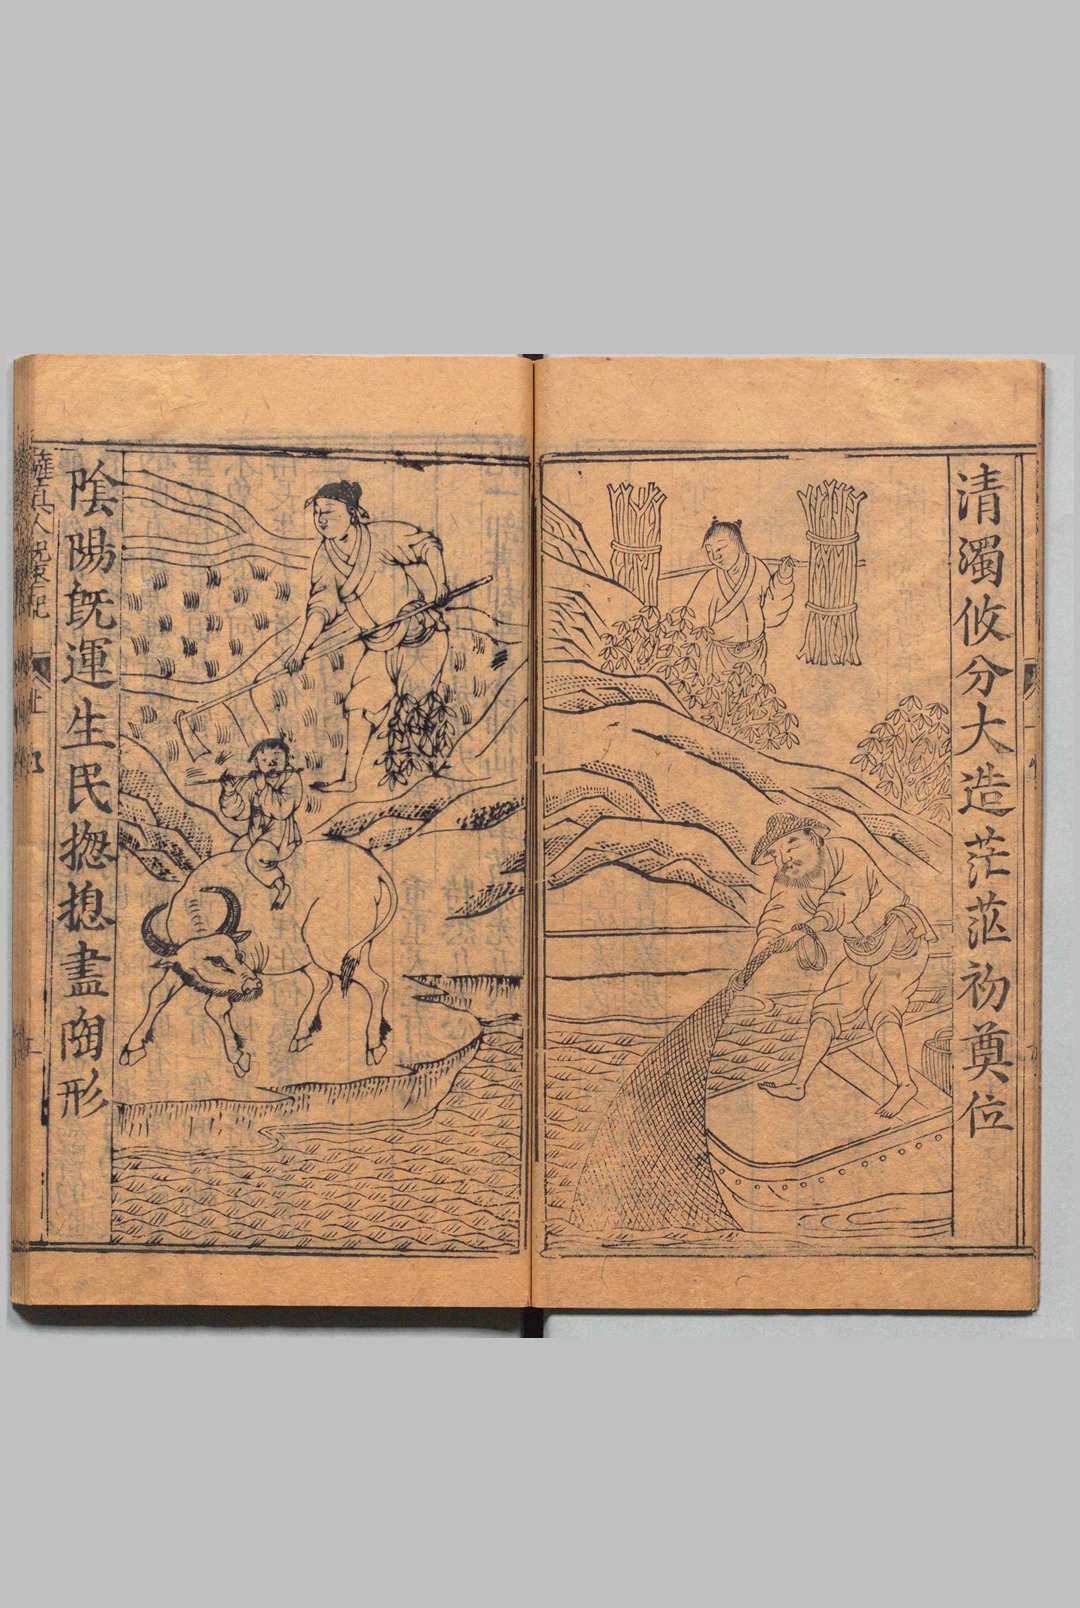 清濁攸分大造茫茫初奠位
陰陽旣運生民揔揔盡陶形
薩真人呪棗記